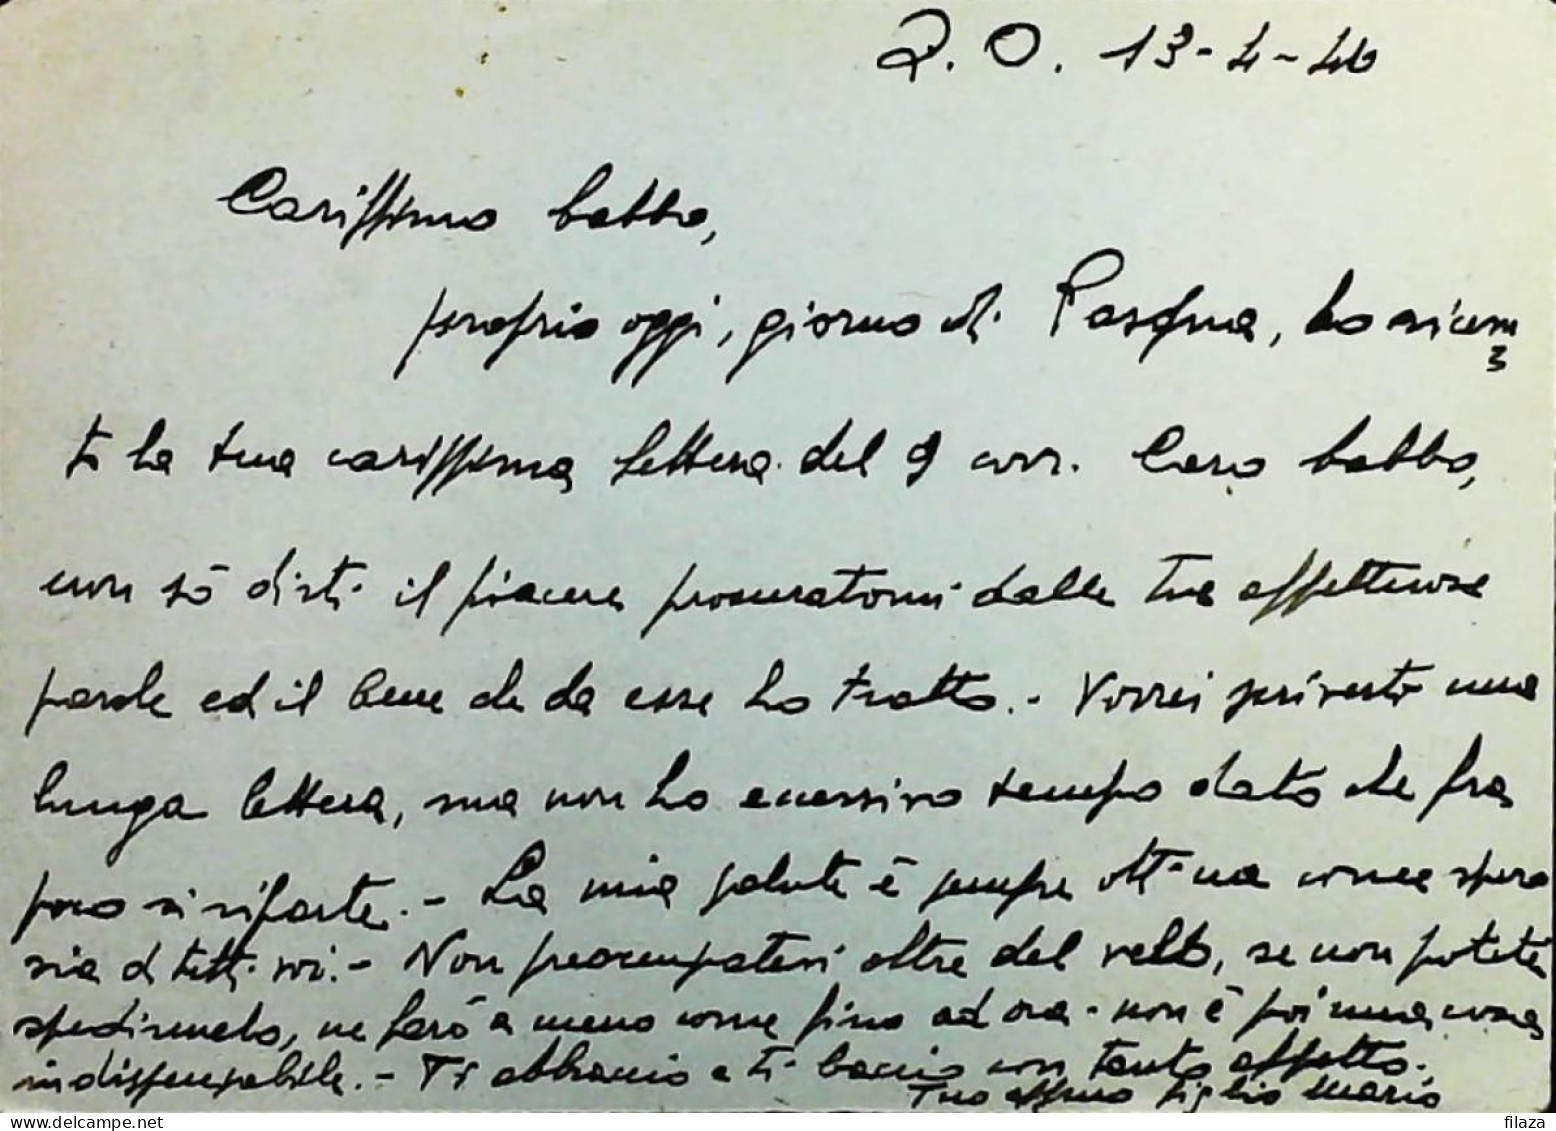 P. O. 13-4-46
Carissimo babbo,
proprio oggi, giorno di Pasqua, ho ricevu
to la tua carissima lettera del 9 corr. Caro babbo,
non sò dirti il piacere procuratomi dalle tue affettuose
parole ed il bene che da esse ho tratto.- Vorrei scriverti una
lunga lettera, ma non ho eccessivo tempo dato che fra
poco si riparte.- La mia salute è sempre ottima come spero
sia di tutti voi.- Non preoccupatevi oltre del
se non potete
spedirmelo, ne farò a meno come fino ad ora - non è poi una cosa
indispensabile.- Ti abbraccio e ti bacio con tanto affetto.
Tuo affmo figlio Mario
filaza